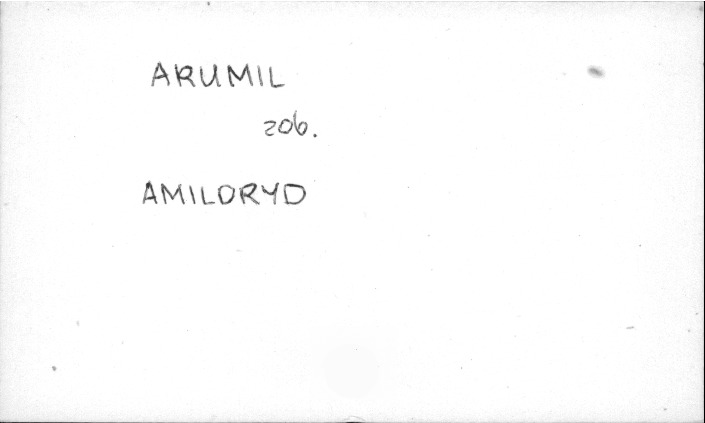 ARUMIL
zob.
AMILORYD